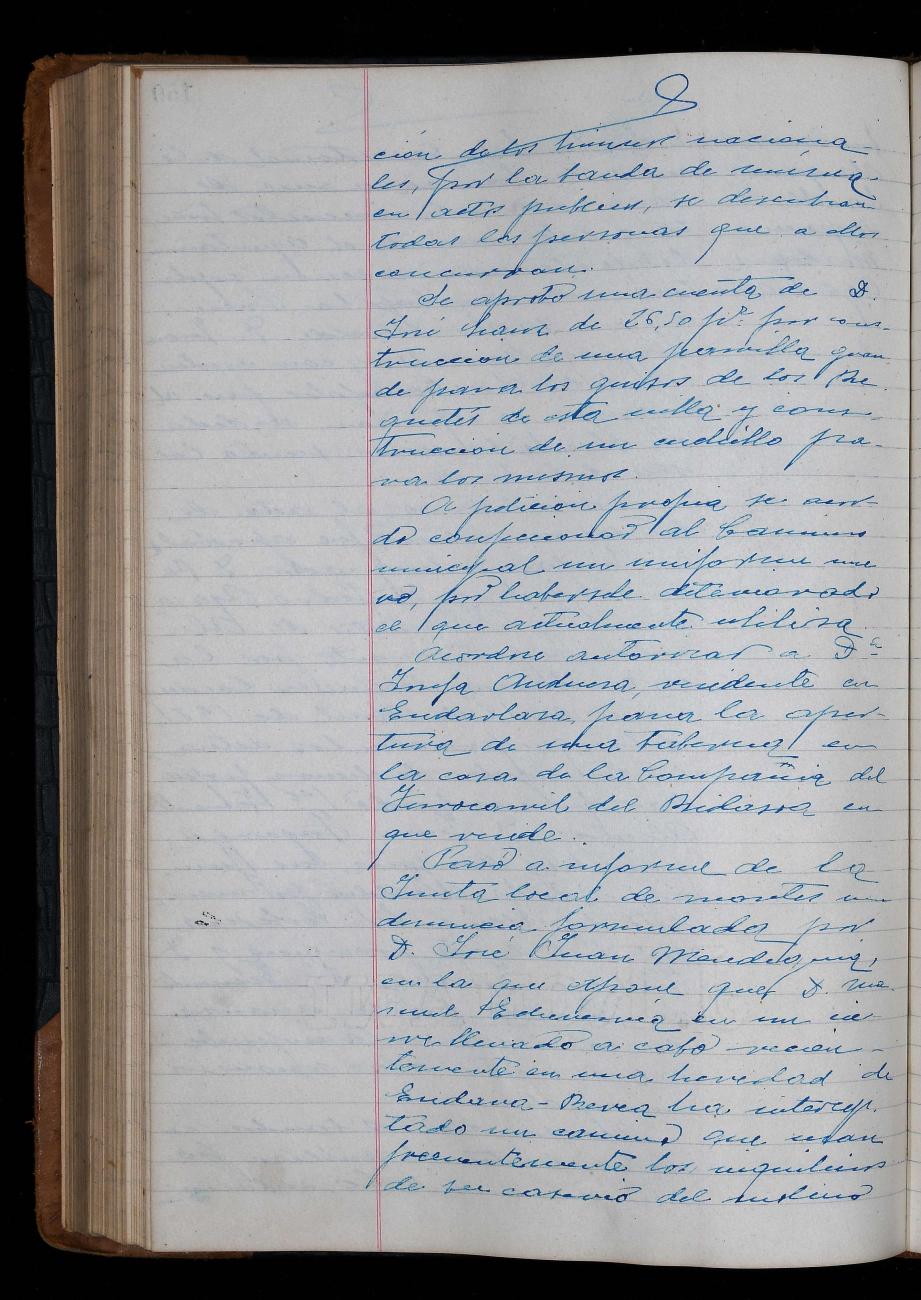 ción de los himnos naciona
les, por la banda de música
en actos públicos, se descubran
todas las personas que a ellos
concurran.
Se aprobó una cuenta de D.
José de 26,50 pts. por cons-
trucción de una parrilla gran
de para los guisos de los Re
quetés de esta villa y cons-
trucción de un cuchillo pa-
ra los mismos.
A petición propia se acor-
dó confeccionar al Camin
municipal un uniforme nue
vo, por habersele deteriorado
el que actualmente utiliza.
Acordose autorizar a Dª
Josefa Anduesa, residente en
Endarlasa, para la aper-
tura de una taberna en
la casa de la Compañia del
Ferrocarril del Bidasoa en
que reside.
Pasó a informe de la
Junta local de montes una
denuncia formulada por
D. José Juan Mendeguia,
en la que expone que D. Ma-
nuel Echeverría en un cie
rre llevado a cabo recien-
temente en una heredad de
Endara-Berea ha intercep-
tado un camino que usan
frecuentemente los inquilinos
de su caserío del molino